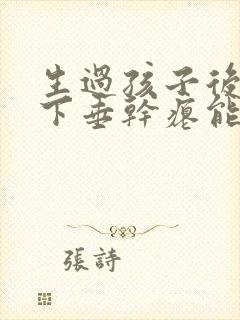 生過孩子後
下垂幹瘪能
張詩